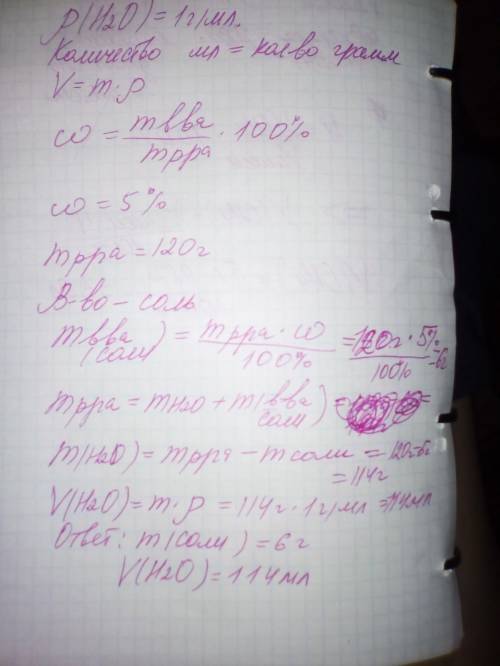 ρ(H2O) = 1г/мл.
Количество мл = кол-во грамм
V = m·ρ
ω = mвва / mрра · 100%
ω = 5%
mрра = 120г
В-во - соль
mвва (соли) = mрра · ω / 100% = 120г · 5% / 100% = 6г
mрра = mH2O + m(вва соли) =
m(H2O) = mрра - mсоли = 120г-6г
= 114г
V(H2O) = m·ρ = 114г · 1г/мл = 114мл
Ответ: m(соли) = 6г
V(H2O) = 114мл